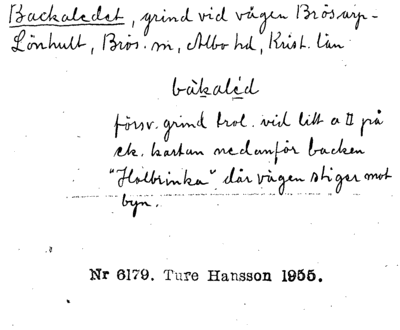 Backaledet, grind vid vägen Brösarp-
Lönhult, Brös. sn, Albo hd, Krist. län
båkaléd
försv. grind trol. vid litt a på
ek. kartan nedanför backen
"Hålbrinka" där vägen stiger mot
byn.
Nr 6179. Ture Hansson 1955.